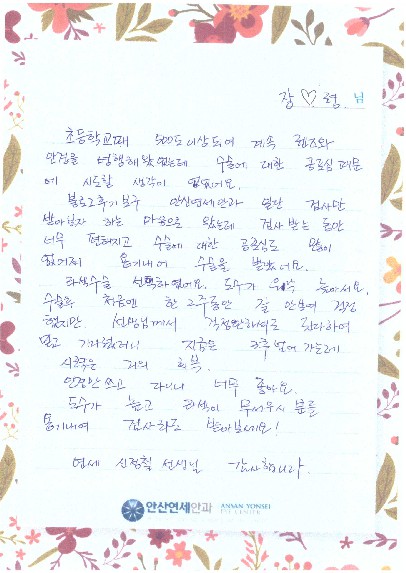 장♡령 님
초등학교때 500도이상되어 계속 렌즈와
안경을 병행해왔었는데 수술에 대한 공포심 때문
에 시도할 생각이 없었어요.
블로그후기보구 안산연세안과 일단 검사만
받아보자 하는 마음으로 왔는데 검사 받는 동안
너무 편해지고 수술에 대한 공포심도 많이
없어져 용기내어 수술을 받았어요.
라섹수술 선택하였어요. 도수가 워낙 높아서요.
수술후 처음엔 한 2주동안 잘 안보여 걱정
했지만 선생님께서 걱정말하셔도 된다하여
믿고 기다렸더니 지금은 2주 넘어 가는데
시력은 거의 회복.
안경안쓰고 다니니 너무 좋아요.
도수가 높고 라섹이 무서우신 분들
용기내어 검사라도 받아보세요!
연세 신정철 선생님 감사합니다.
안산연세안과 ANSAN YONSEI
EYE CENTER